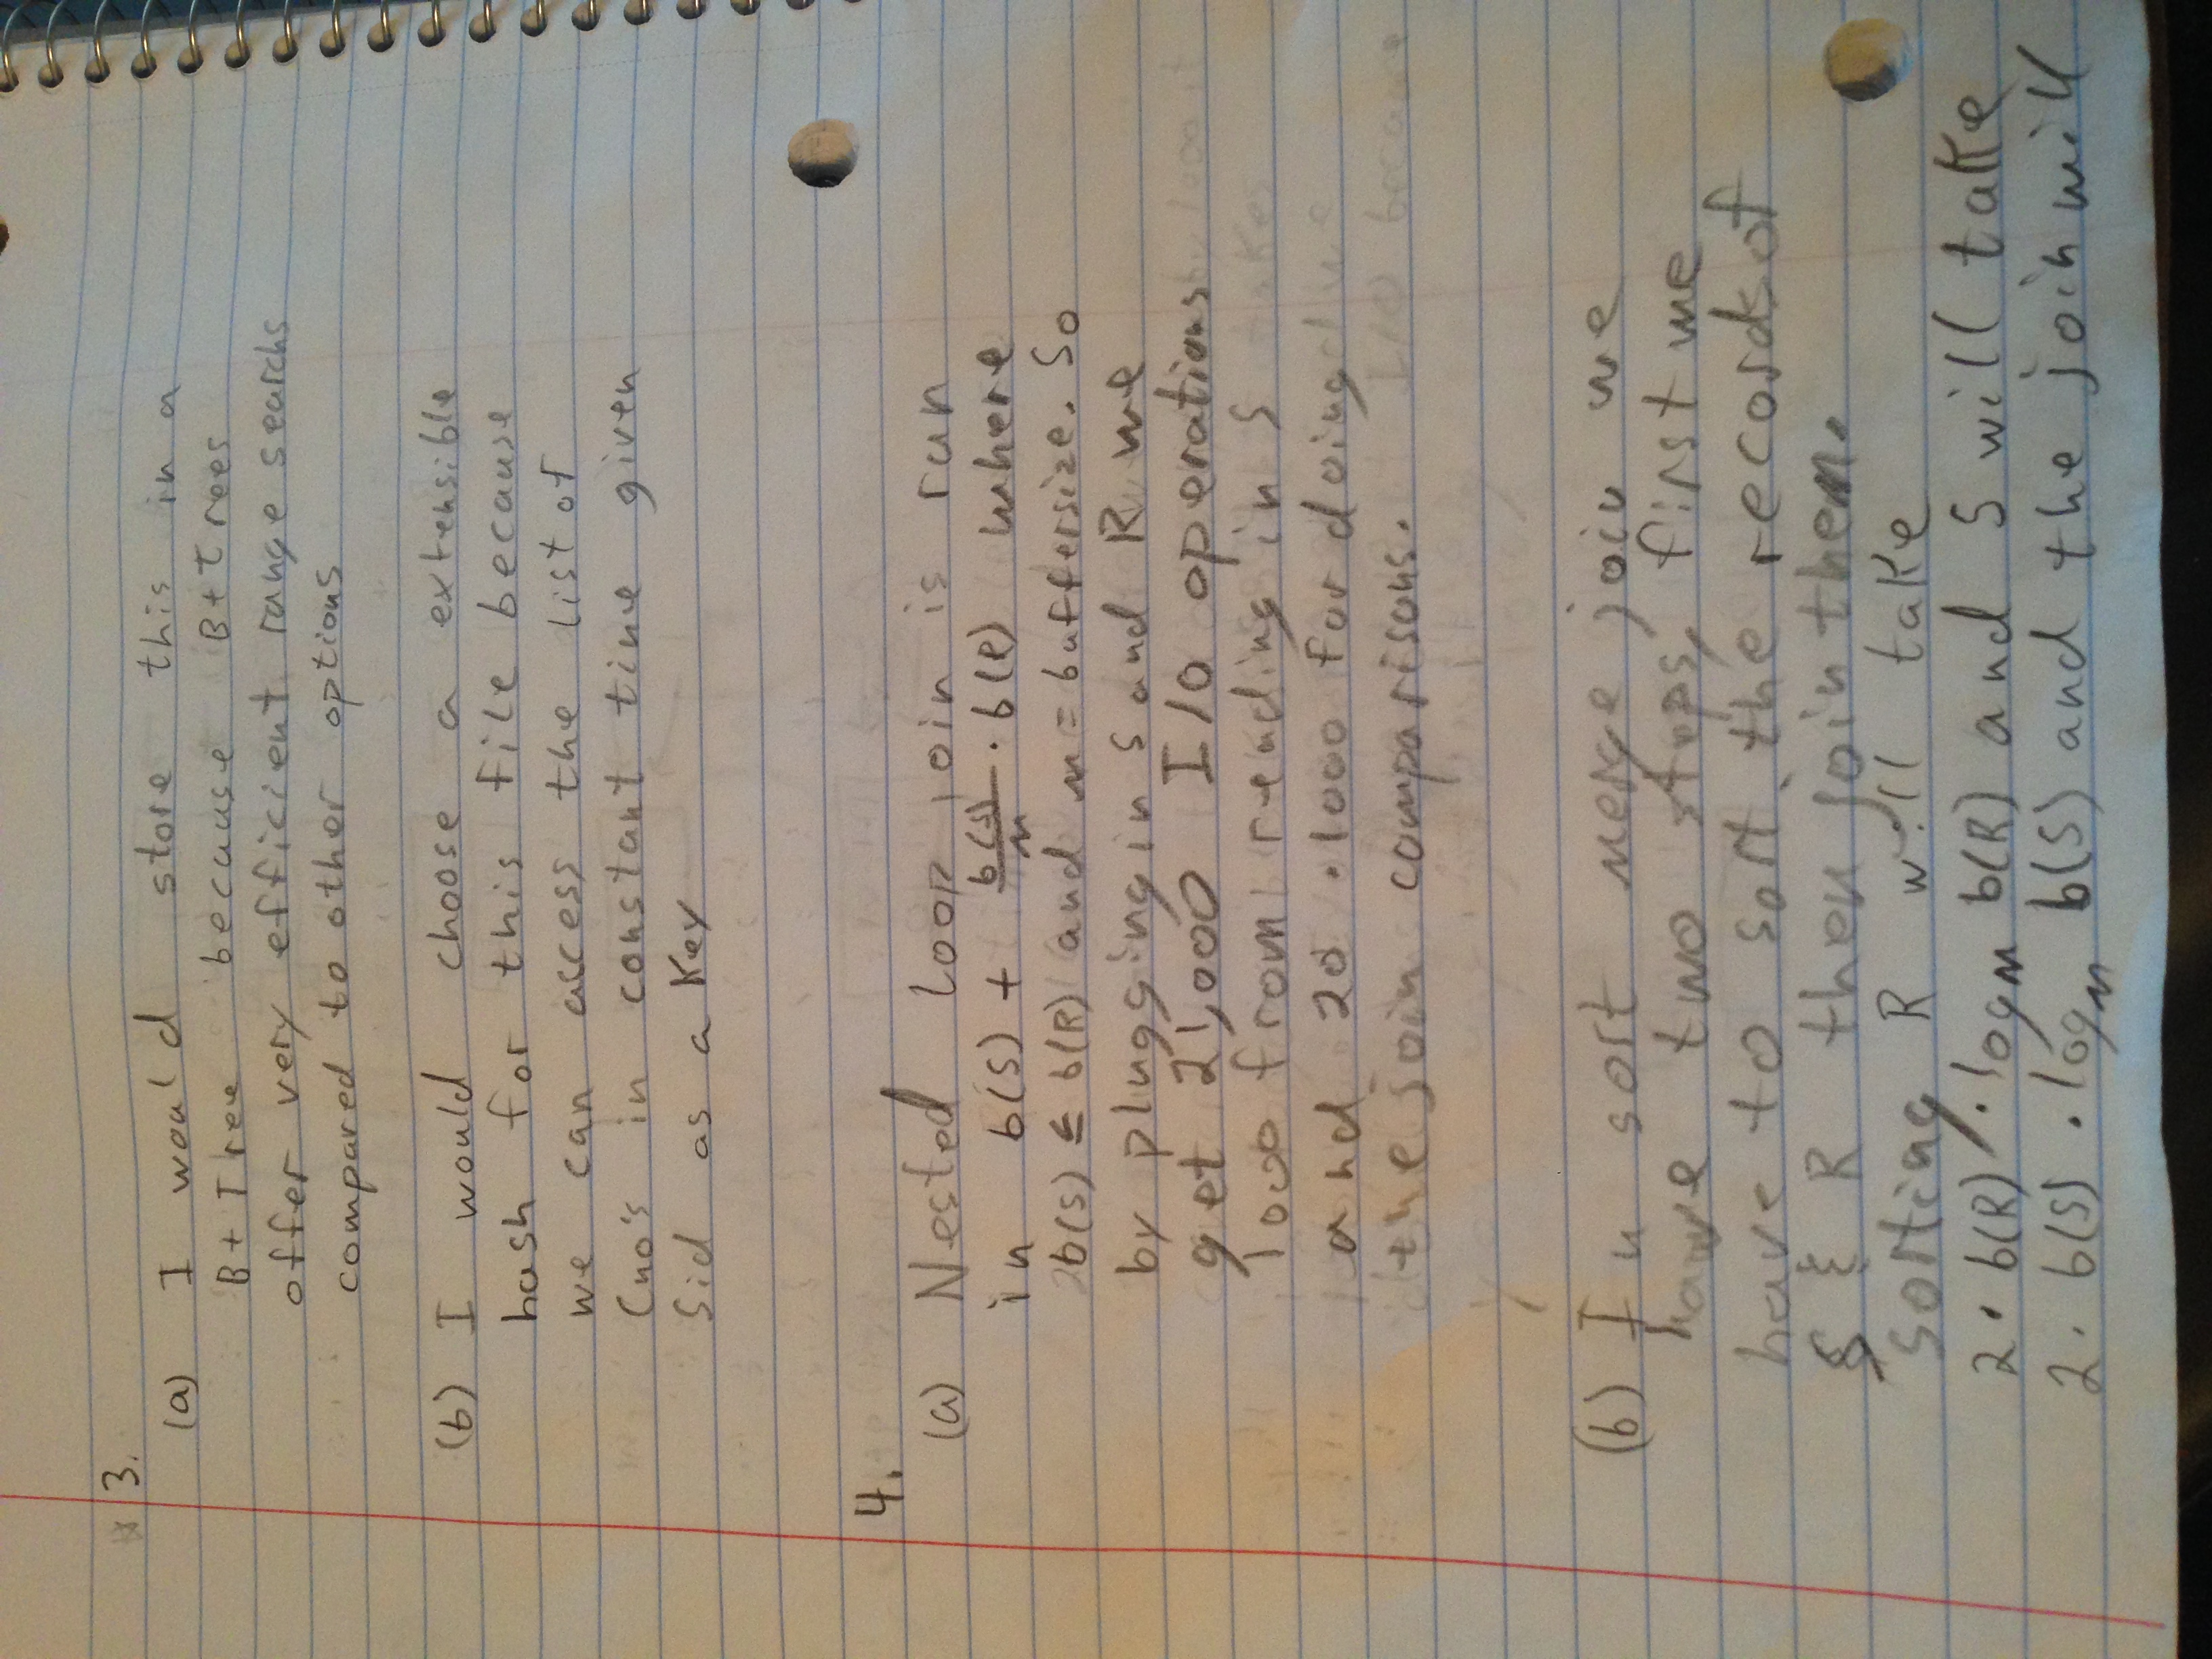 3.
(a) I would store this in a
B+Tree because B+Trees
offer very efficient range searchs
compared to other options
(b) I would choose a extensible
hash for this file because
we can access the list of
Cno's in constant time given
Sid as a Key
4.
(a) Nested loop join is run
in b(S) + b(S)/m · b(R) where
b(S) ≤ b(R) and m = buffersize. So
by plugging in S and R we
get 21,000 I/O operations
1000 from reading in S
and 20 · 1000 for doing
the join comparisons.
(b) In sort merge join we
have two steps, first we
have to sort the records of
S & R then join them.
sorting R will take
2 · b(R) · log m b(R) and S will take
2 · b(S) · log m b(S) and the join will